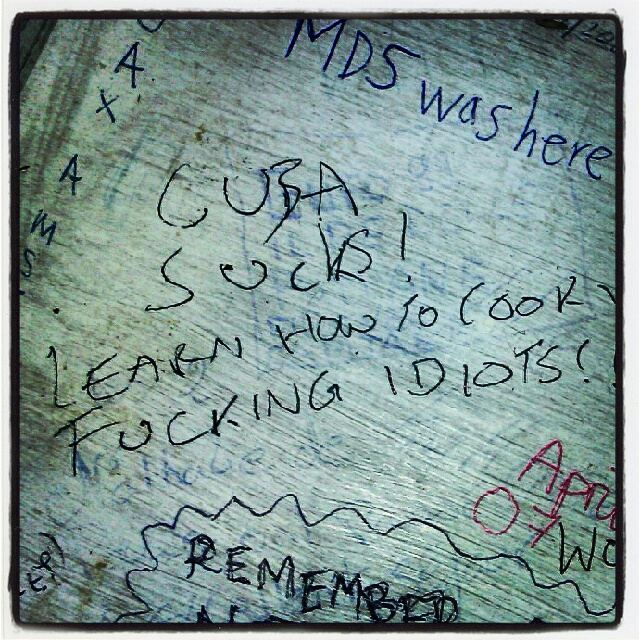 MDS was here
A
+
A
M
S
CUBA
SUCKS!
LEARN HOW TO COOK
FUCKING IDIOTS!
REMEMBED